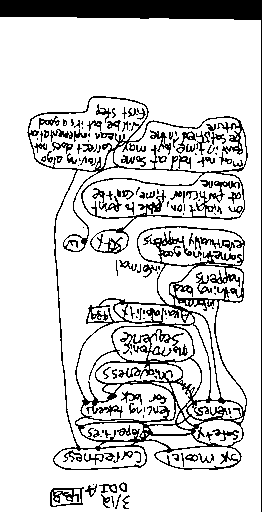 3/12
DDIA
Sys model
Correctness
Safety
Properties
Liveness
fencing token
for lock
Uniqueness
monotonic
sequence
Availability
informal
nothing bad
happens
informal
something good
eventually happens
on violation, able to point
at particular time, can't be
undone
may not hold at some
point in time, but may
be satisfied in the
future
Proving algo
correct does not
mean implementation
will be, but it's a good
first step